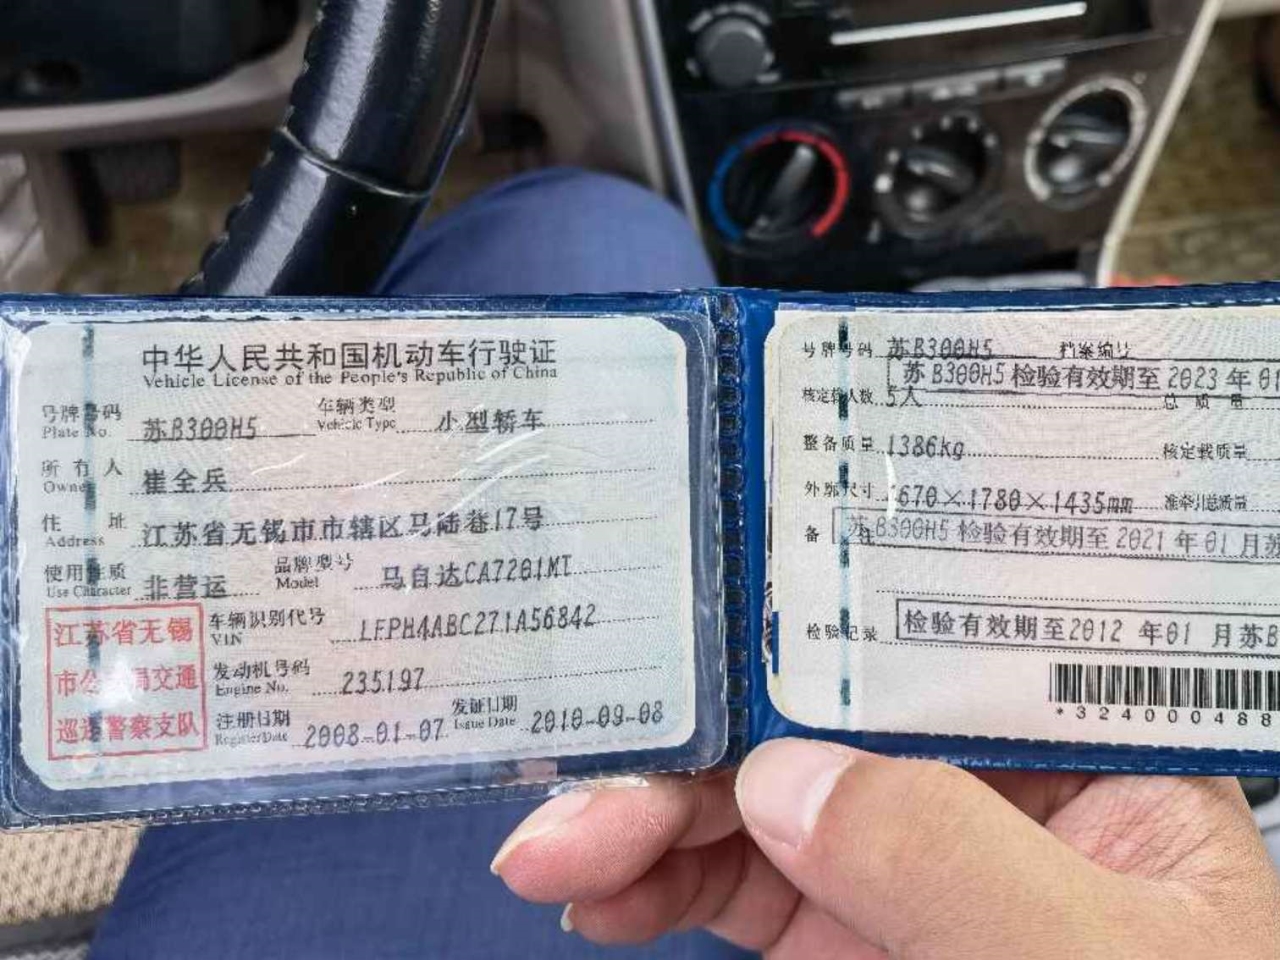 中华人民共和国机动车行驶证
Vehicle License of the People's Republic of China
号牌号码 苏B300H5 车辆类型 小型轿车
Plate No. Vehicle Type
所有人 崔全兵
Owner
住址 江苏省无锡市市辖区马陆巷17号
Address
使用性质 非营运 品牌型号 马自达CA7201MT
Use Character Model
江苏省无锡
车辆识别代号 LFPH4ABC271A56842
VIN
市公 局交通
发动机号码 235197
Engine No.
巡逻警察支队
注册日期 2008-01-07 发证日期 2010-09-08
Register Date Issue Date
号牌号码 苏B300H5 档案编号
苏B300H5检验有效期至2023年01
核定载人数 5人 总质量
整备质量 1386kg 核定载质量
外廓尺寸 670×1780×1435mm 准牵引总质量
备注 苏B300H5检验有效期至2021年01月苏
检验记录 检验有效期至2012年01月苏B
*324000488